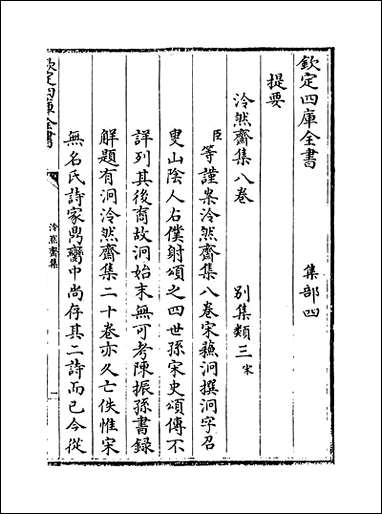 欽定四庫全書　集部四
提要
泠然齋集八卷　別集類三宋
臣等謹案泠然齋集八卷宋蘓泂撰泂字召
叟山陰人右僕射頌之四世孫宋史頌傳不
詳列其後裔故泂始末無可考陳振孫書録
解題有泂泠然齋集二十卷亦久亡佚惟宋
無名氏詩家鼎臠中尚存其二詩而已今從
欽定四庫全書
泠然齋集
一